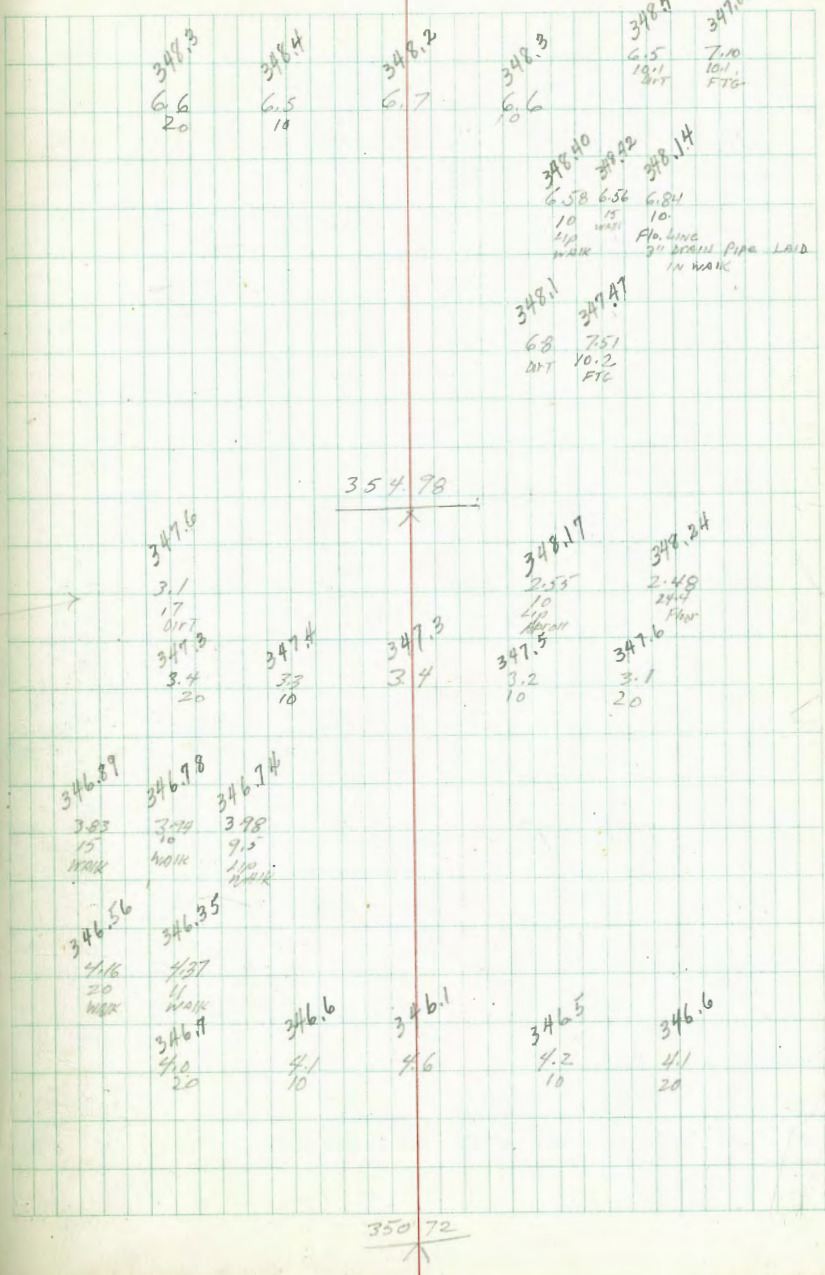 348.3 348.4 348.2 348.3
6.6 6.5 6.7 6.6 6.5 7.10
20 10 10 10.1 10.1
DIRT FTG.
348.40 348.42 348.14
6.58 6.56 6.84
10 15 10.
Lip WALK Flo. LINE
WALK 3" DRAIN PIPE LAID
IN WALK
348.1 347.47
6.8 7.51
DIRT 10.2
FTG
354.98
347.6 348.17 348.24
3.1 2.55 2.48
17 10 24.4
DIRT Lip Floor
Apron
347.3 347.4 347.3 347.5 347.6
3.4 3.3 3.4 3.2 3.1
20 10 10 20
346.89 346.78 346.74
3.83 3.94 3.98
15 10 9.5
WALK WALK Lip
WALK
346.56 346.35
4.16 4.37
20 11
WALK WALK
346.7 346.6 346.1 346.5 346.6
4.0 4.1 4.6 4.2 4.1
20 10 10 20
350.72